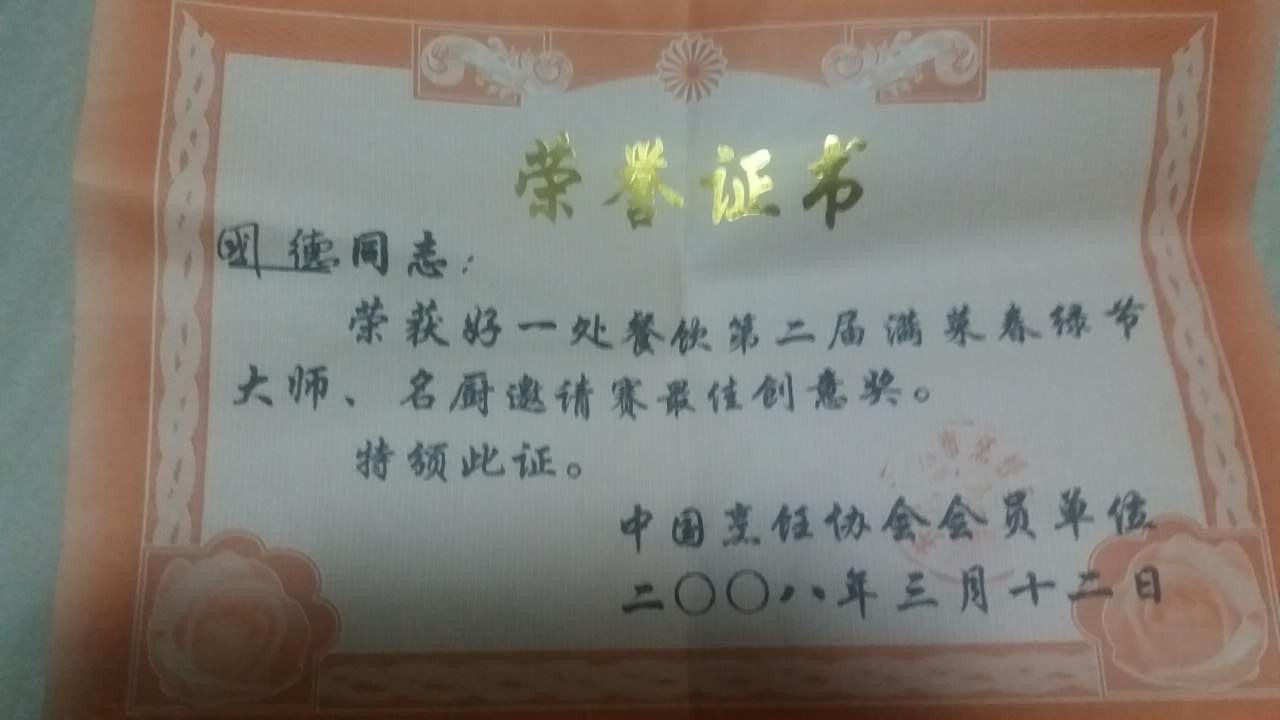 荣誉证书
國德同志：
荣获好一处餐饮第二届满菜春绿节
大师、名厨邀请赛最佳创意奖。
特颁此证。
中国烹饪协会会员单位
二〇〇八年三月十二日